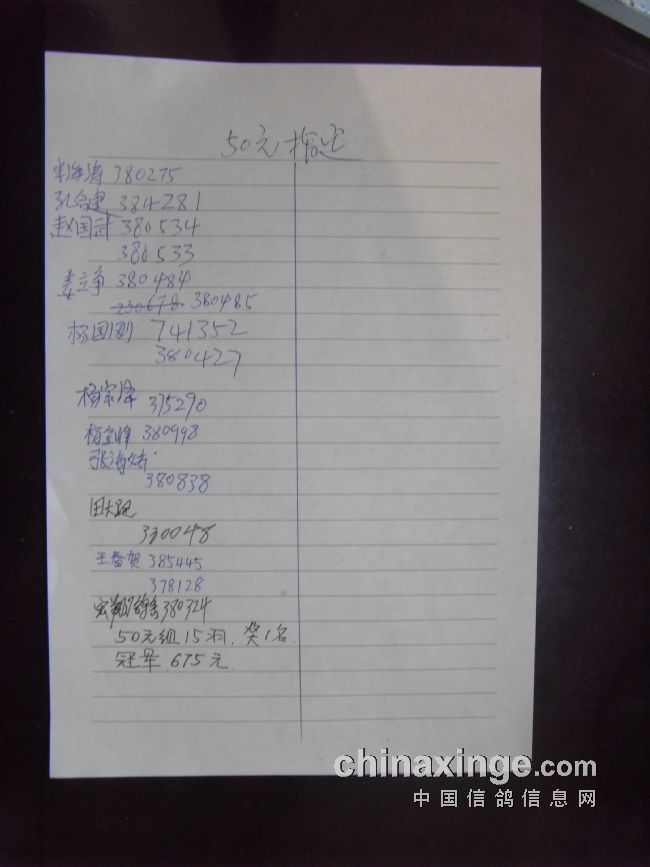 50元指定
380275
384281
赵国武 380534
380533
姜立争 380484
230678 380485
杨国刚 741352
380427
杨家泽 375290
杨金峰 380998
张海娇
380838
田大
330048
王春贺 385445
378128
380324
50元组15羽.奖1名.
冠军.675元.
chinaxinge.com
中国信鸽信息网